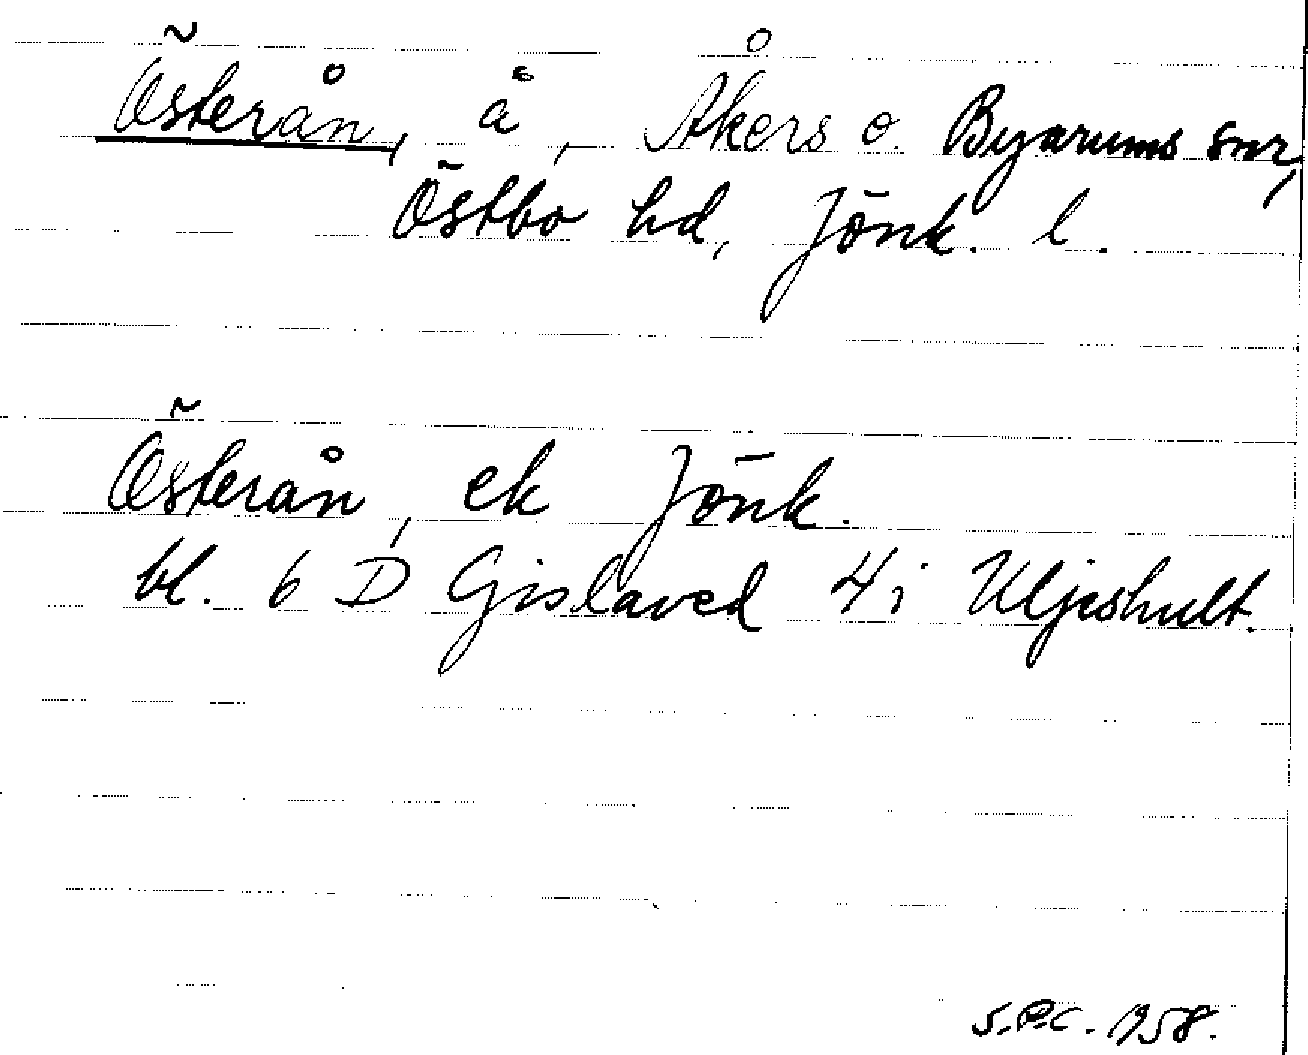 Österån, å, Åkers o. Byarums snr,
Östbo hd, Jönk. l.
Österån, ek Jönk.
bl. 6 D Gislaved 4i Uljeshult.
S.P.C. 1958.